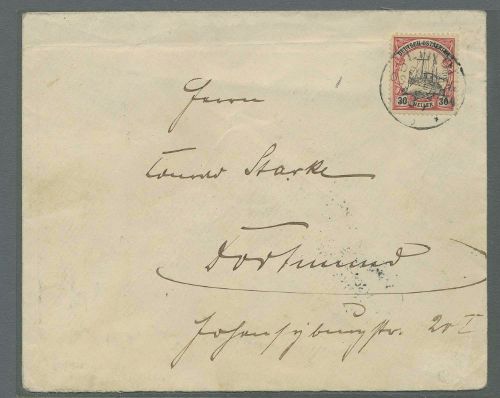 DEUTSCH-OSTAFRIKA
30 HELLER 30
Herrn
Conrad Starke
Dortmund
Hohensyburgstr. 20 I